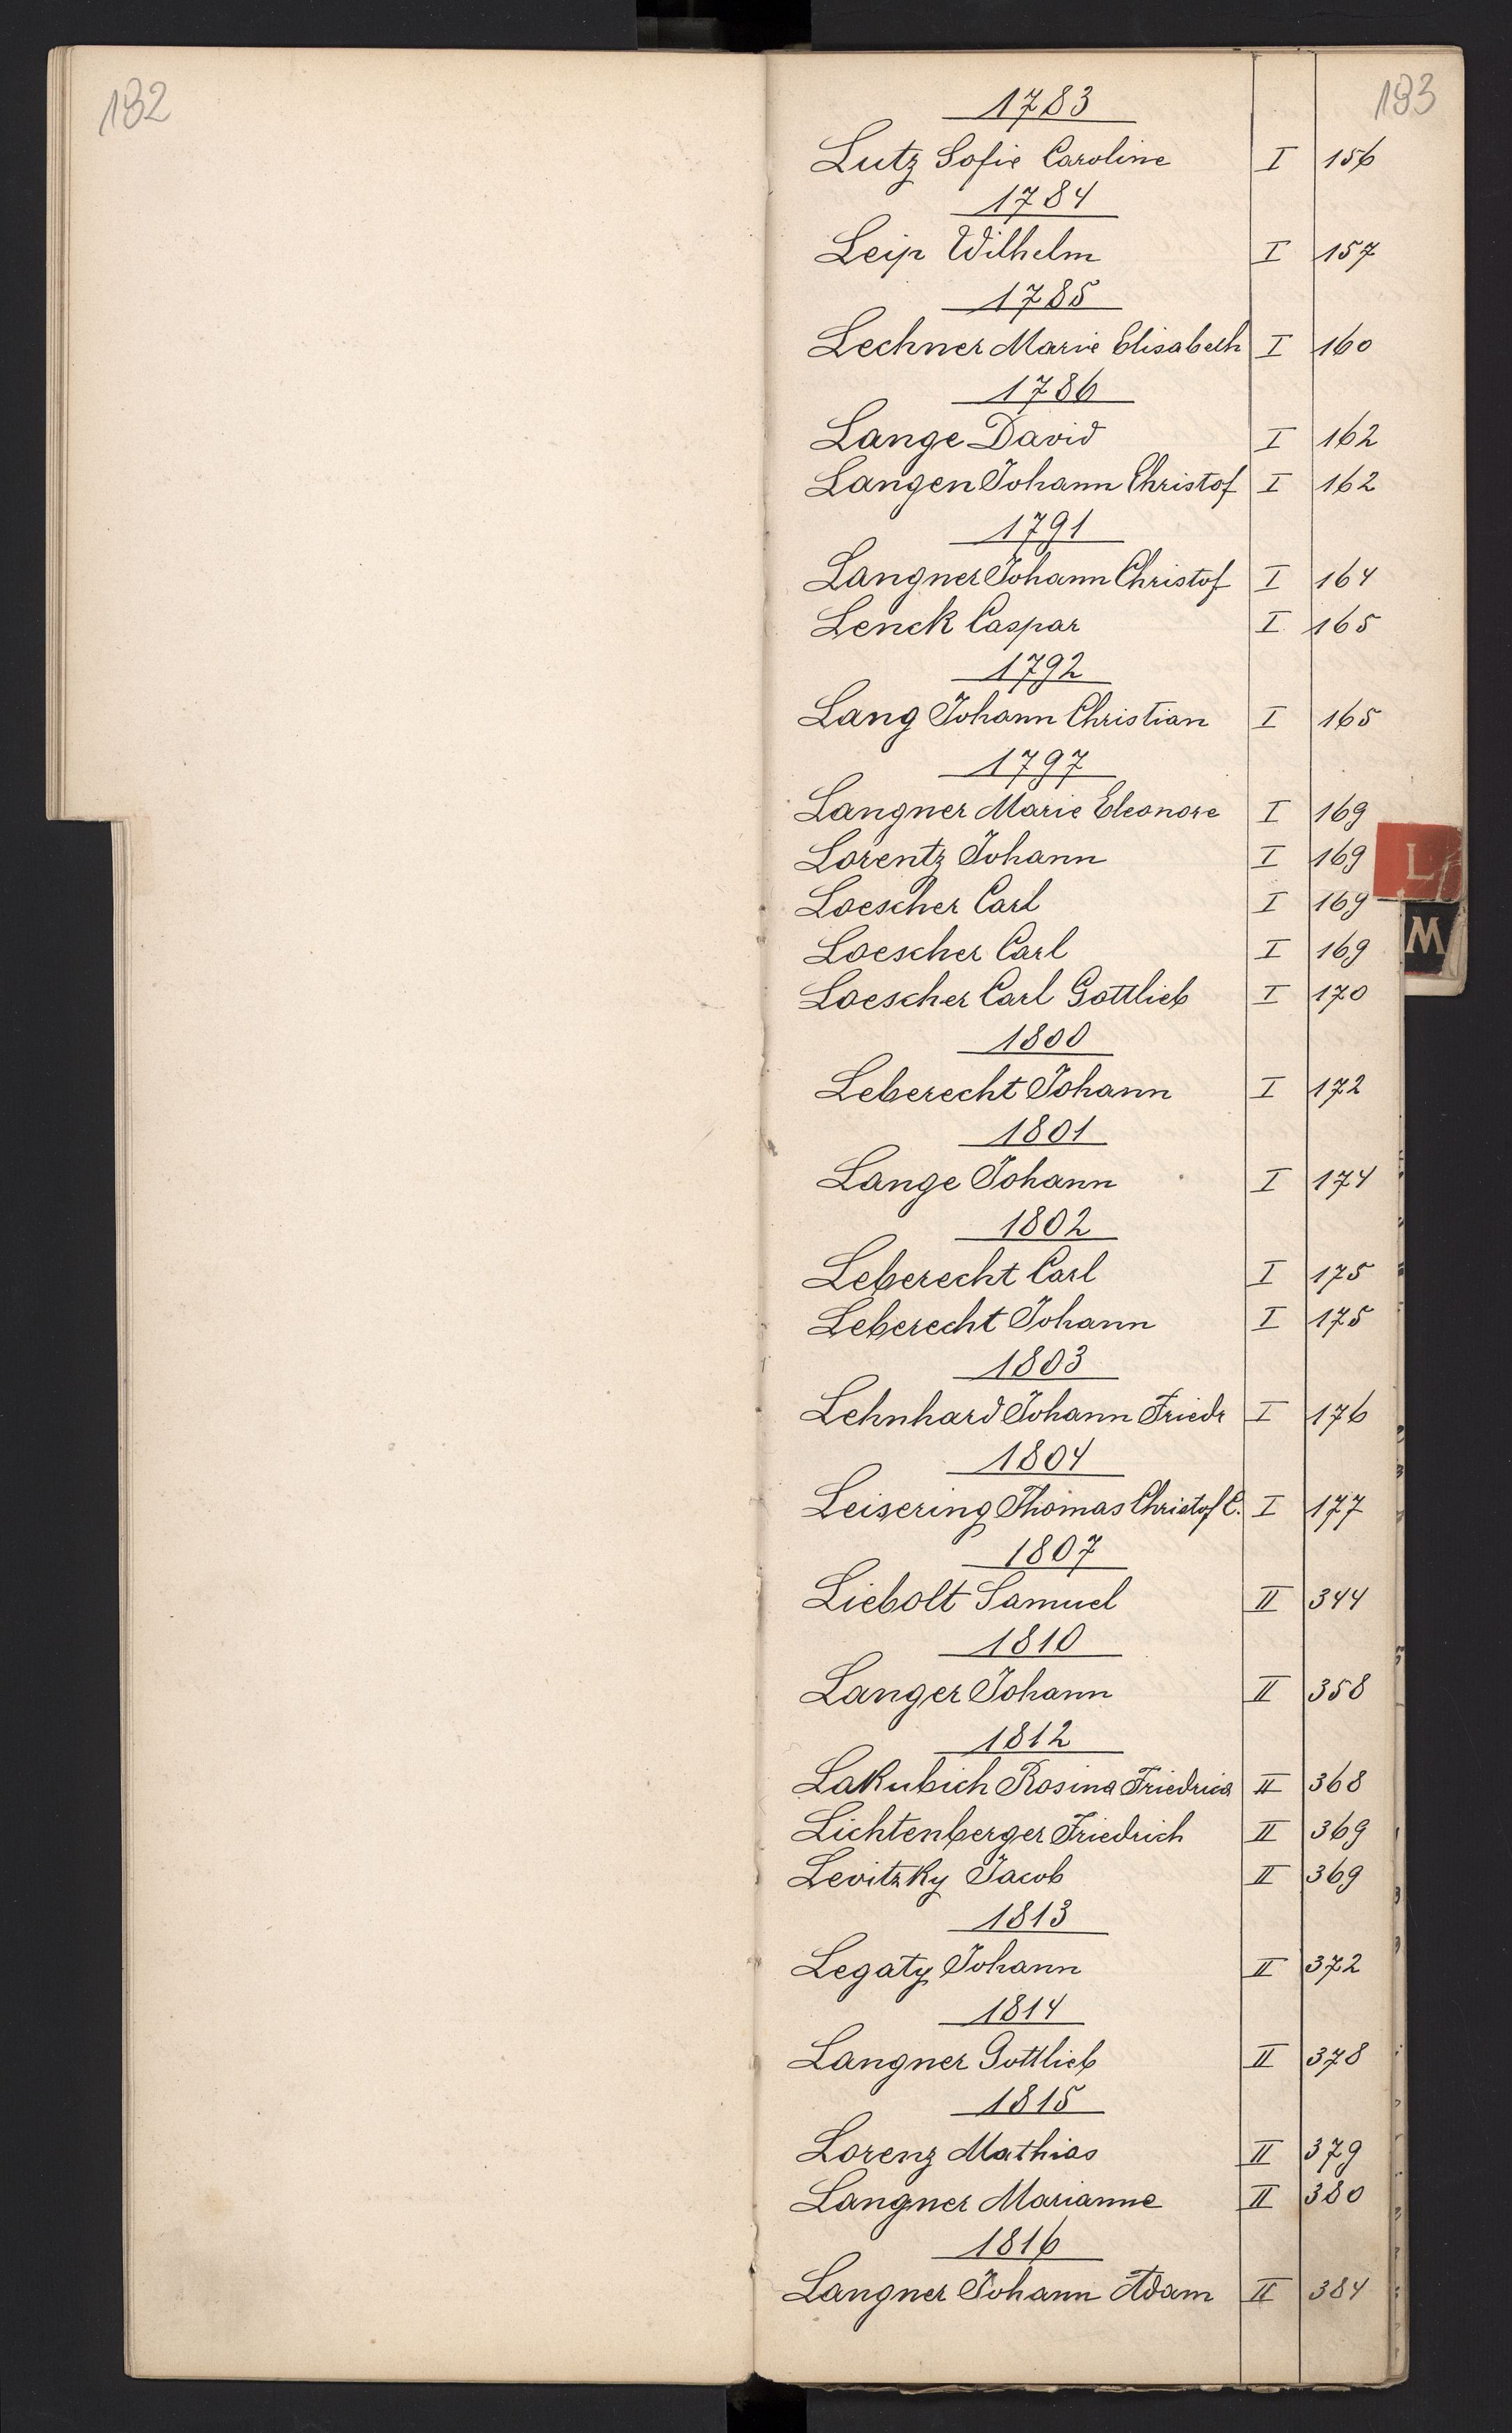 182
183
1783
Lutz Sofie Caroline I 156
1784
Leip Wilhelm I 157
1785
Lechner Marie Elisabeth I 160
1786
Lange David I 162
Langen Johann Christof I 162
1791
Langner Johann Christof I 164
Lenck Caspar I 165
1792
Lang Johann Christian I 165
1797
Langner Marie Eleonore I 169
Lorentz Johann I 169
Loescher Carl I 169
Loescher Carl I 169
Loescher Carl Gottlieb I 170
1800
Leberecht Johann I 172
1801
Lange Johann I 174
1802
Leberecht Carl I 175
Leberecht Johann I 175
1803
Lehnhard Johann Friedr I 176
1804
Leisering Thomas Christof C. I 177
1807
Liebolt Samuel II 344
1810
Langer Johann II 358
1812
Lakubich Rosina Friedrica II 368
Lichtenberger Friedrich II 369
Levitzky Jacob II 369
1813
Legaty Johann II 372
1814
Langner Gottlieb II 378
1815
Lorenz Mathias II 379
Langner Marianne II 380
1816
Langner Johann Adam II 384
L
M